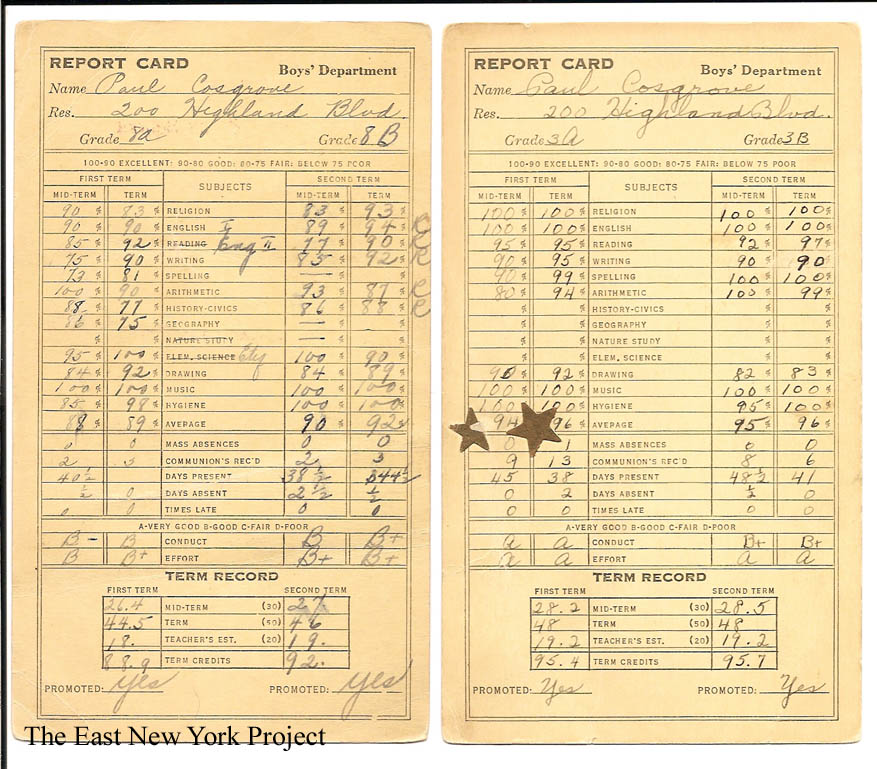 REPORT CARD
Boys' Department
Name Paul Cosgrove
Res. 200 Highland Blvd.
Grade 8a Grade 8B
100-90 EXCELLENT: 90-80 GOOD: 80-75 FAIR: BELOW 75 POOR
FIRST TERM SUBJECTS SECOND TERM
MID-TERM TERM MID-TERM TERM
90 % 83 % RELIGION 83 % 93 %
90 % 90 % ENGLISH I 89 % 94 % R
85 % 92 % READING Eng II 77 % 90 % R
75 % 90 % WRITING 85 % 92 % R
73 % 81 % SPELLING — % %
100 % 90 % ARITHMETIC 93 % 87 % R
88 % 77 % HISTORY-CIVICS 86 % 88 % R
86 % 75 % GEOGRAPHY — % %
% % NATURE STUDY — % %
95 % 100 % ELEM. SCIENCE 100 % 90 %
84 % 92 % DRAWING 84 % 89 %
100 % 100 % MUSIC 100 % 100 %
85 % 98 % HYGIENE 100 % 100 %
88 % 89 % AVERAGE 90 % 92 %
0 0 MASS ABSENCES 0 0
2 3 COMMUNION'S REC'D 2 3
40½ DAYS PRESENT 38½ 44½
½ 0 DAYS ABSENT 2½ ½
0 0 TIMES LATE 0 0
A-VERY GOOD B-GOOD C-FAIR D-POOR
B- B CONDUCT B B+
B B+ EFFORT B+ B+
TERM RECORD
FIRST TERM SECOND TERM
26.4 MID-TERM (30) 27
44.5 TERM (50) 46
18. TEACHER'S EST. (20) 19.
88.9 TERM CREDITS 92.
PROMOTED: yes PROMOTED: yes
REPORT CARD
Boys' Department
Name Paul Cosgrove
Res. 200 Highland Blvd.
Grade 3A Grade 3B
100-90 EXCELLENT: 90-80 GOOD: 80-75 FAIR: BELOW 75 POOR
FIRST TERM SUBJECTS SECOND TERM
MID-TERM TERM MID-TERM TERM
100 % 100 % RELIGION 100 % 100 %
100 % 100 % ENGLISH 100 % 100 %
95 % 95 % READING 92 % 97 %
90 % 95 % WRITING 90 % 90 %
90 % 99 % SPELLING 100 % 100 %
80 % 94 % ARITHMETIC 100 % 99 %
% % HISTORY-CIVICS % %
% % GEOGRAPHY % %
% % NATURE STUDY % %
% % ELEM. SCIENCE % %
90 % 92 % DRAWING 82 % 83 %
100 % 100 % MUSIC 100 % 100 %
100 % 100 % HYGIENE 95 % 100 %
94 % 96 % AVERAGE 95 % 96 %
0 1 MASS ABSENCES 0 0
9 13 COMMUNION'S REC'D 8 6
45 38 DAYS PRESENT 48½ 41
0 2 DAYS ABSENT ½ 0
0 0 TIMES LATE 0 0
A-VERY GOOD B-GOOD C-FAIR D-POOR
a a CONDUCT B+ B+
a a EFFORT a a
TERM RECORD
FIRST TERM SECOND TERM
28.2 MID-TERM (30) 28.5
48 TERM (50) 48
19.2 TEACHER'S EST. (20) 19.2
95.4 TERM CREDITS 95.7
PROMOTED: Yes PROMOTED: Yes
The East New York Project